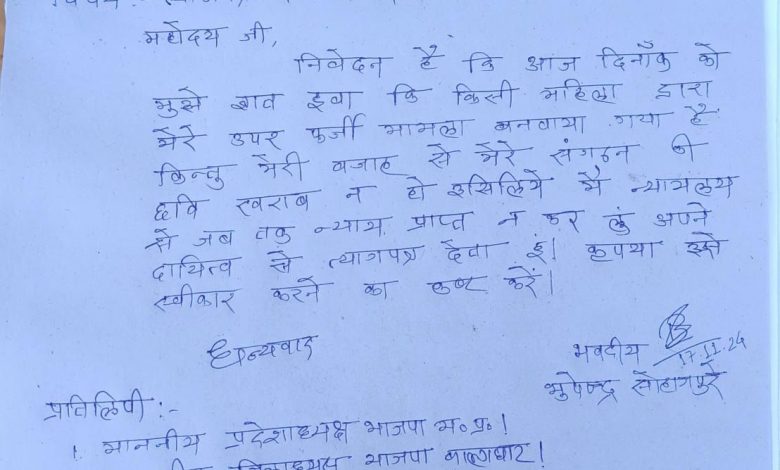 महोदय जी,
निवेदन है कि आज दिनाँक को
मुझे ज्ञात हुवा कि किसी महिला द्वारा
मेरे उपर फर्जी मामला बनवाया गया है
किन्तु मेरी वजाह से मेरे संगठन की
छवि खराब न हो इसिलिये मै न्यायलय
से जब तक न्याय प्राप्त न कर लुं अपने
दायित्व से त्यागपत्र देता हुं। कृपया इसे
स्वीकार करने का कष्ट करें।
धन्यवाद
भवदीय
17.11.24
भुपेन्द्र सोहागपुरे
प्रतिलिपी :-
1. माननीय प्रदेशाध्यक्ष भाजपा म.प्र.।
जिलाध्यक्ष भाजपा बालाघाट।